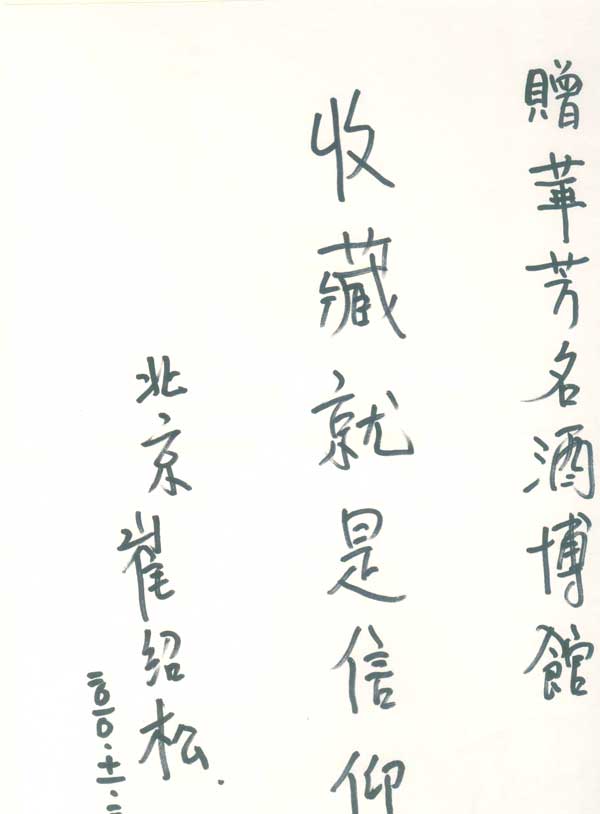 贈華芳名酒博館
收藏就是信仰
北京崔绍松
二〇一〇.十一.